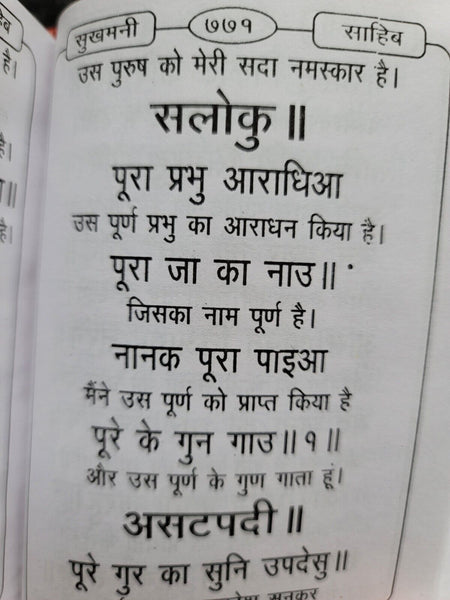 सुखमनी
७७१
साहिब
उस पुरुष को मेरी सदा नमस्कार है।
सलोकु॥
पूरा प्रभु आराधिआ
उस पूर्ण प्रभु का आराधन किया है।
पूरा जा का नाउ॥
जिसका नाम पूर्ण है।
नानक पूरा पाइआ
मैंने उस पूर्ण को प्राप्त किया है
पूरे के गुन गाउ॥१॥
और उस पूर्ण के गुण गाता हूं।
असटपदी॥
पूरे गुर का सुनि उपदेसु॥